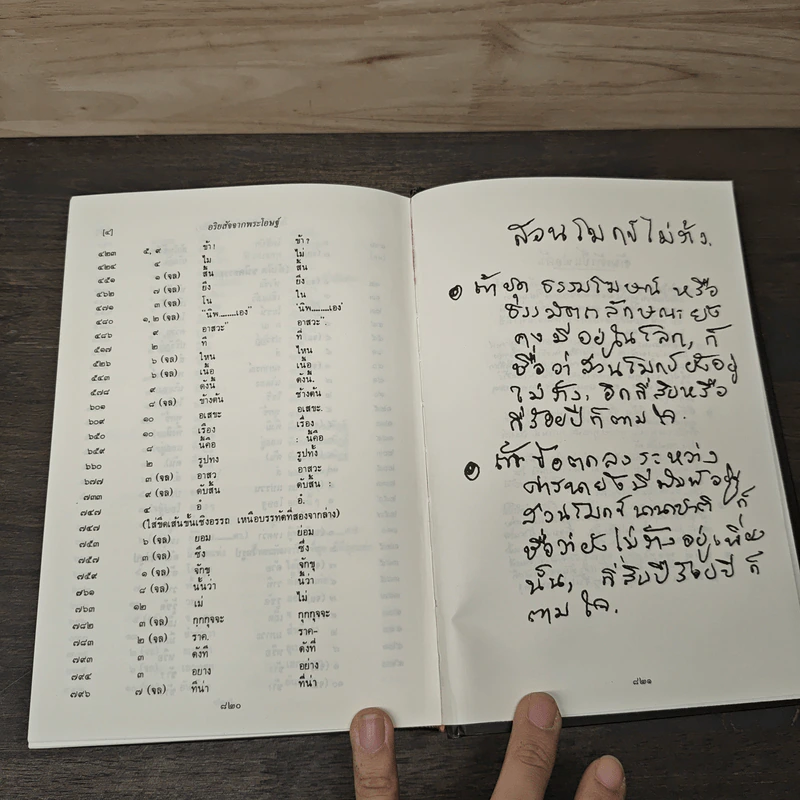 [๔] อริยสัจจากพระโอษฐ์
๔๒๓ ๕, ๙ ข้า! ข้า?
๔๒๔ ๔ ไม ไม่
๔๕๑ ๑ (จล) สั้น สั้น
๔๖๒ ๗ (จล) ยึง ยิ่ง
๔๗๑ ๓ (จล) โน ใน
๔๘๐ ๑, ๒ (จล) "นิพ.........เอง" 'นิพ.........เอง'
๔๘๖ ๙ อาสวะ" อาสวะ".
๕๑๗ ๒ ที ที่
๕๒๖ ๖ (จล) ไหน ไหน
๕๔๓ ๖ (จล) เนื้อ เนื้อ
๕๗๘ ๙ ดังนั้ ดังนี้.
๖๐๑ ๘ (จล) ข้างตัน ข้างต้น
๖๐๙ ๑๐ อเสขะ อเสขะ.
๖๕๐ ๑๐ เรือง เรื่อง
๖๕๙ ๘ นี้คือ : นี้คือ
๖๖๐ ๒ รูปทง รูปทั้ง
๖๗๗ ๓ (จล) อาสว อาสวะ
๗๓๓ ๙ (จล) ดับสิ้น ดับสิ้น :
๗๔๗ ๔ อ้ อ้.
๗๔๗ (ใส่ขีดเส้นขั้นเชิงอรรถ เหนือบรรทัดที่สองจากล่าง)
๗๕๓ ๖ (จล) ยอม ย่อม
๗๕๗ ๓ (จล) ซึ่ง ซึ่ง
๗๕๙ ๑ (จล) จักขุ จักขุ
๗๖๑ ๘ (จล) นั้นว่า นี้ว่า
๗๖๓ ๑๒ เม่ ไม่
๗๘๒ ๓ (จล) กุกกุจจะ กุกกุจจะ
๗๘๓ ๒ (จล) ราค. ราค–
๗๙๓ ๓ ดังที ดังที่
๗๙๔ ๓ อยาง อย่าง
๗๙๖ ๗ (จล) ที่น่า ที่น่า
๘๒๐
สวนโมกข์ไม่ร้าง.
ถ้ายุค ธรรมโฆษณ์ หรือ
ธรรมิตกลักษณะ ยัง
คงมีอยู่ในโลก, ก็
ชื่อว่า สวนโมกข์ยังอยู่
ไม่ร้าง, อีกสี่สิบหรือ
สี่ร้อยปีก็ตามใจ.
ถ้าข้อตกลงระหว่าง
ศาสนายังมีพิมพ์อยู่
สวนโมกข์นานาชาติ ก็
ชื่อว่ายังไม่ร้างอยู่เพียง
นั้น, สี่สิบปีร้อยปี ก็
ตามใจ.
๘๒๑